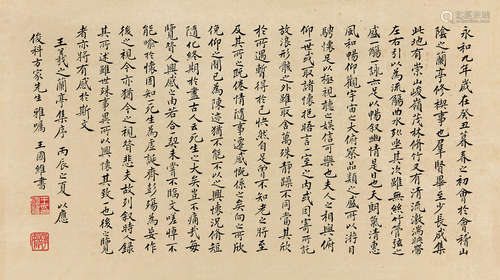 永和九年歲在癸丑暮春之初會於會稽山
陰之蘭亭修禊事也羣賢畢至少長咸集
此地有崇山峻嶺茂林脩竹又有清流激湍映帶
左右引以為流觴曲水列坐其次雖無絲竹管弦之
盛一觴一詠亦足以暢敘幽情是日也天朗氣清惠
風和暢仰觀宇宙之大俯察品類之盛所以遊目
騁懷足以極視聽之娛信可樂也夫人之相與俯
仰一世或取諸懷抱晤言一室之內或因寄所託
放浪形骸之外雖取舍萬殊靜躁不同當其欣
於所遇暫得於己快然自足曾不知老之將至
及其所之既倦情隨事遷感慨係之矣向之所欣
俛仰之間已為陳迹猶不能不以之興懷況脩短
隨化終期於盡古人云死生亦大矣豈不痛哉每
覽昔人興感之由若合一契未嘗不臨文嗟悼不
能喻於懷固知一死生為虛誕齊彭殤為妄作
後之視今亦猶今之視昔悲夫故列敘時人錄
其所述雖世殊事異所以興懷其致一也後之覽
者亦將有感於斯文
王羲之蘭亭集序 丙辰之夏 以應
俊科方家先生雅囑 王國維書